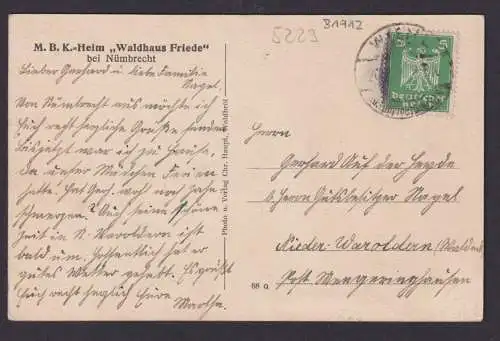 5223
B1912
M. B. K.-Heim „Waldhaus Friede"
bei Nümbrecht
Lieber Gerhard u. liebe Familie
Nagel.
Von Nümbrecht aus möchte ich
Euch recht herzliche Grüße senden.
war ich zu Hause,
da unser Mädchen Ferien
hatte. Hat Gerh. wohl noch
schmerzen? Auch seine schöne
Zeit in N. Waroldern ist
bald um. Hoffentlich hat er
gutes Wetter gehabt. Es grüßt
Euch recht herzlich Eure Martha.
Photo u. Verlag Chr. Haupt, Waldbröl
68 a
Deutsches
Reich
5
Herrn
Gerhard Auf der Heyde
b. Herrn Gutsbesitzer Nagel
Nieder-Waroldern (Waldeck)
Post Mengeringhausen